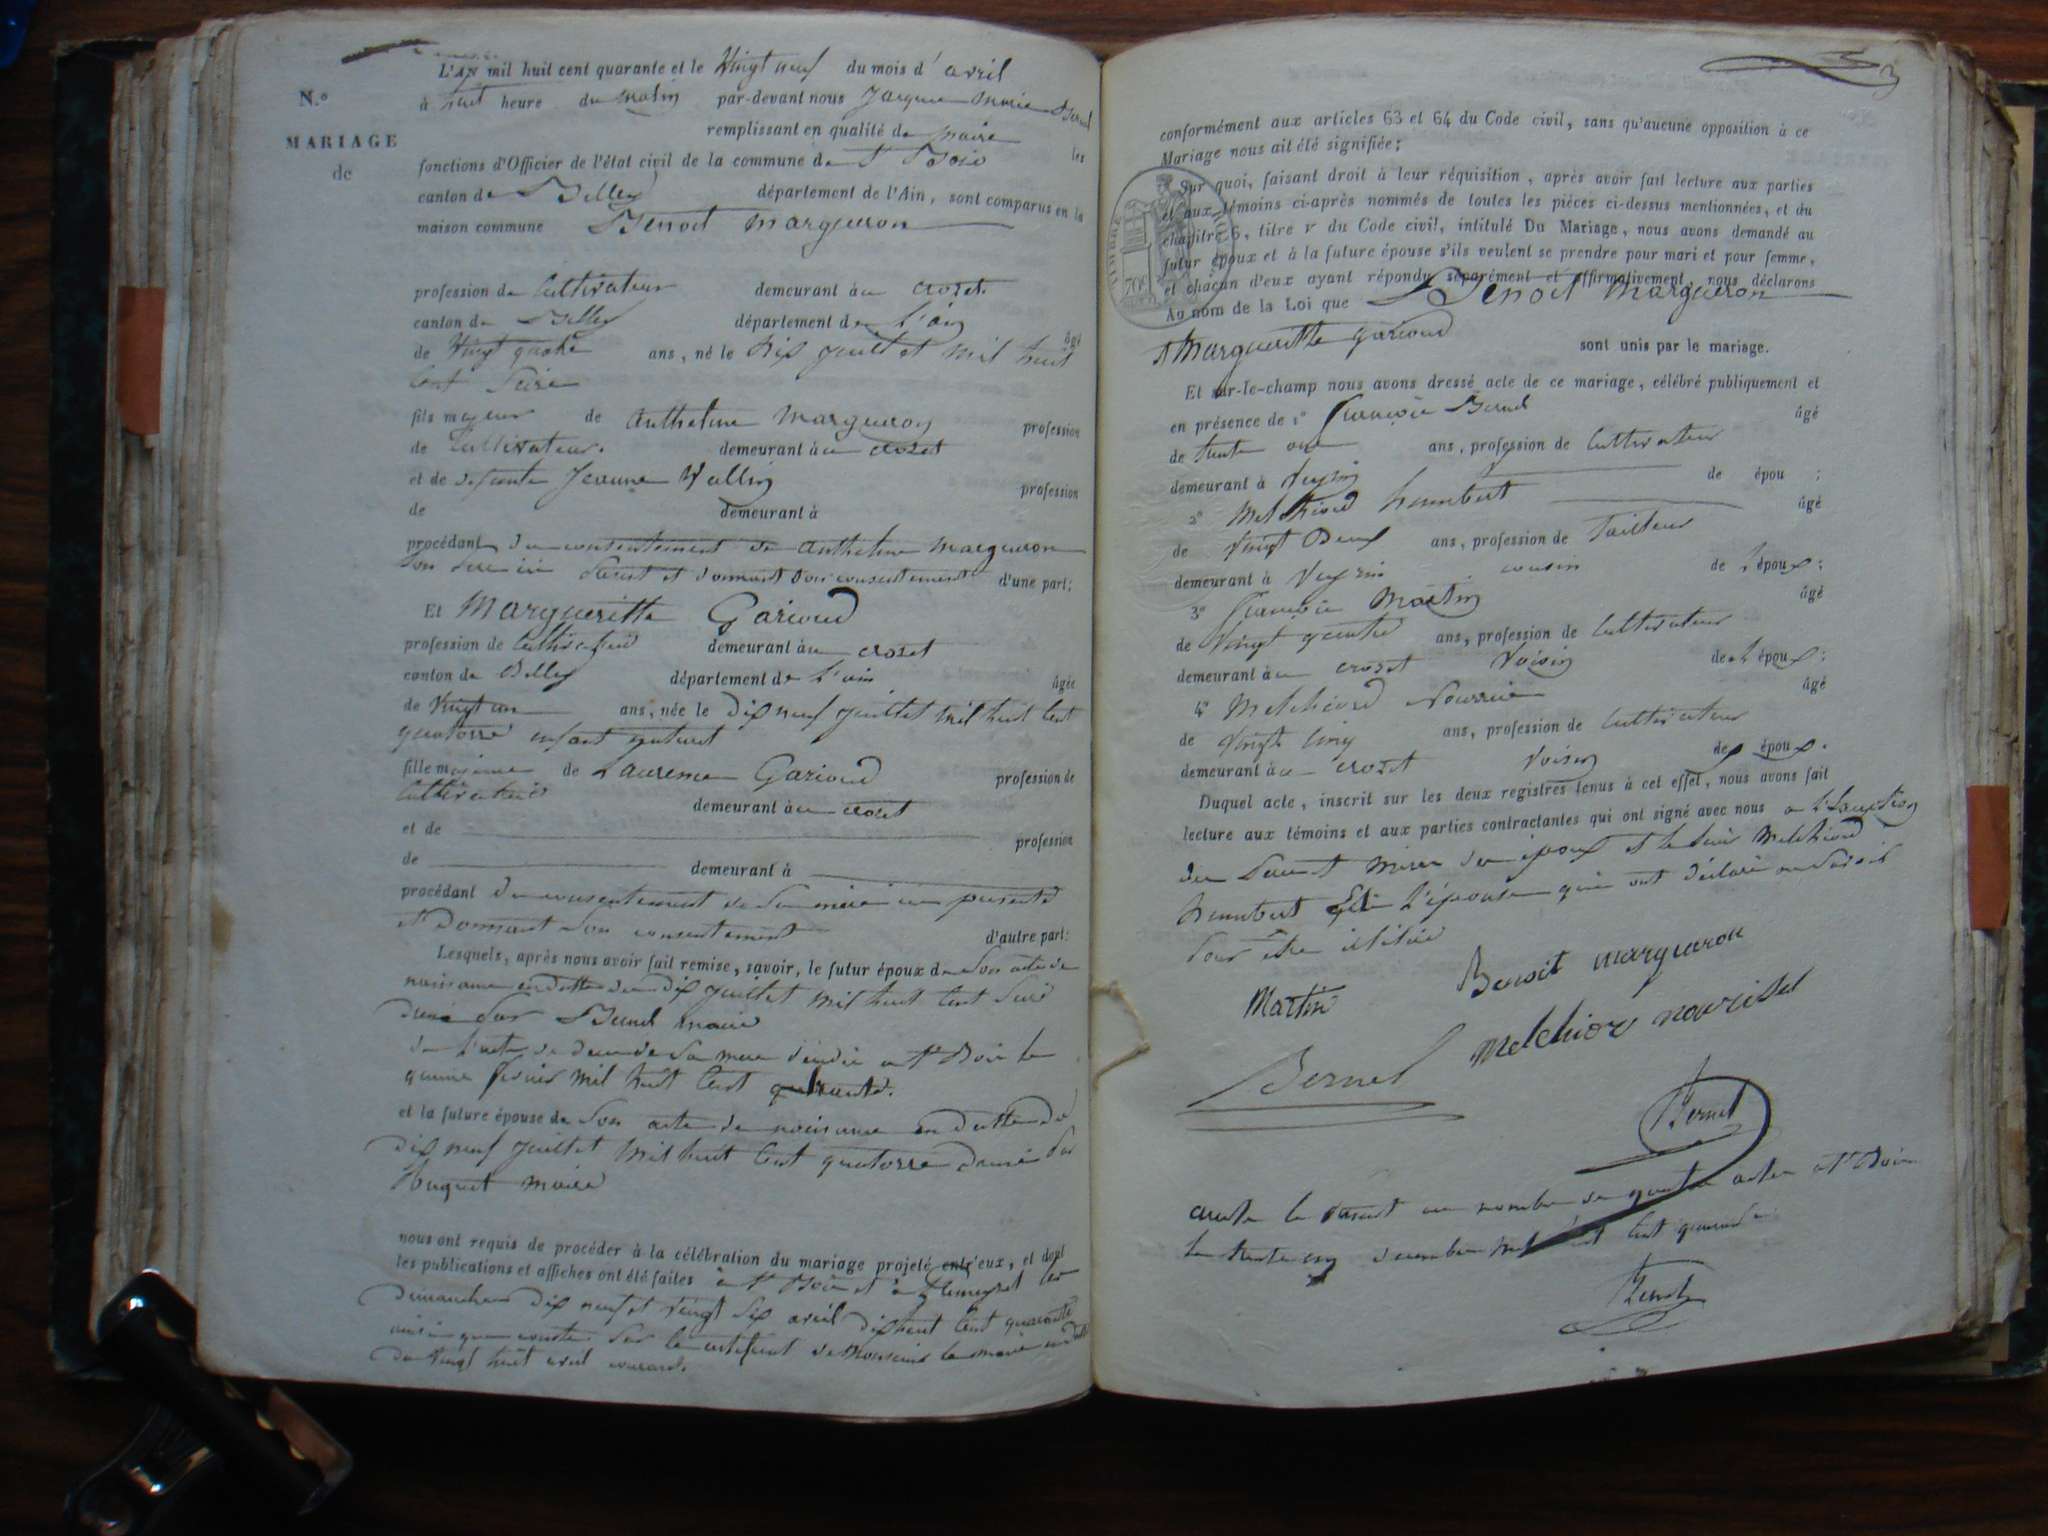 N.o
MARIAGE
de
L'AN mil huit cent quarante et le Vingt neuf du mois d' avril
à huit heure du matin par-devant nous Jacque Marie Bernel
remplissant en qualité de maire les
fonctions d'Officier de l'état civil de la commune de St Bois
canton de Belley département de l'Ain, sont comparus en la
maison commune Benoit Margueron
profession de Cultivateur demeurant à au crozet
canton de Belley département de L'ain âgé
de Vingt quatre ans, né le Dix juillet mil huit
Cent Seize
fils majeur de Anthelme Margueron profession
de Cultivateur. demeurant à au crozet
et de défunte Jeanne Vallin profession
de demeurant à
procédant du consentement de Anthelme Margueron
Son père ici présent et donnant son consentement d'une part;
Et Margueritte Garioud
profession de Cultivatrice demeurant à au crozet
canton de Belley département de L'ain âgée
de Vingt un ans, née le Dix neuf juillet mil huit Cent
quatorze enfant naturel
fille majeure de Laurence Garioud profession de
Cultivatrice demeurant à au crozet
et de profession
de demeurant à
procédant du consentement de Sa mère ici présente
et Donnant Son consentement d'autre part:
Lesquels, après nous avoir fait remise, savoir, le futur époux de Son acte de
naissance en datte du Dix juillet mil huit Cent Seize
par Bernel maire
de l'acte de décès de Sa mère à St Bois le
quinze février mil huit Cent quarante.
et la future épouse de Son acte de naissance en datte du
Dix neuf juillet mil huit Cent quatorze par
Huguet maire
nous ont requis de procéder à la célébration du mariage projeté entr'eux, et dont
les publications et affiches ont été faites à St Bois et à les
Dimanches Dix neuf et vingt Six avril Dix huit Cent quarante
ainsi que conste par le certificat de Monsieur le maire en datte
du Vingt huit avril courant.
3
conformément aux articles 63 et 64 du Code civil, sans qu'aucune opposition à ce
Mariage nous ait été signifiée;
Sur quoi, faisant droit à leur réquisition, après avoir fait lecture aux parties
et aux témoins ci-après nommés de toutes les pièces ci-dessus mentionnées, et du
chapitre 6, titre v du Code civil, intitulé Du Mariage, nous avons demandé au
futur époux et à la future épouse s'ils veulent se prendre pour mari et pour femme,
et chacun d'eux ayant répondu séparément et affirmativement, nous déclarons
Au nom de la Loi que Benoit Margueron
et Margueritte garioud sont unis par le mariage.
Et sur-le-champ nous avons dressé acte de ce mariage, célébré publiquement et
en présence de 1o François Bernel âgé
de trente ans, profession de Cultivateur
demeurant à Veyrin de épou ;
2o Melchiord humbert âgé
de Vingt Deux ans, profession de Tailleur
demeurant à Veyrin cousin de L'époux;
3o François Martin âgé
de Vingt quatre ans, profession de Cultivateur
demeurant à au crozet Voisin de L'époux;
4o Melchiord Nourrice âgé
de Vingt Cinq ans, profession de Cultivateur
demeurant à au crozet Voisin de époux.
Duquel acte, inscrit sur les deux registres tenus à cet effet, nous avons fait
lecture aux témoins et aux parties contractantes qui ont signé avec nous
du époux et Melchiord
humbert L'épouse qui ont déclaré ne Savoir
pour être
Martin
Benoit margueron
Bernel
melchior
Bernel
le présent au nombre de quatre actes à St Bois
le trente un décembre mil huit Cent quarante
Bernel
TIMBRE ROYAL
70c